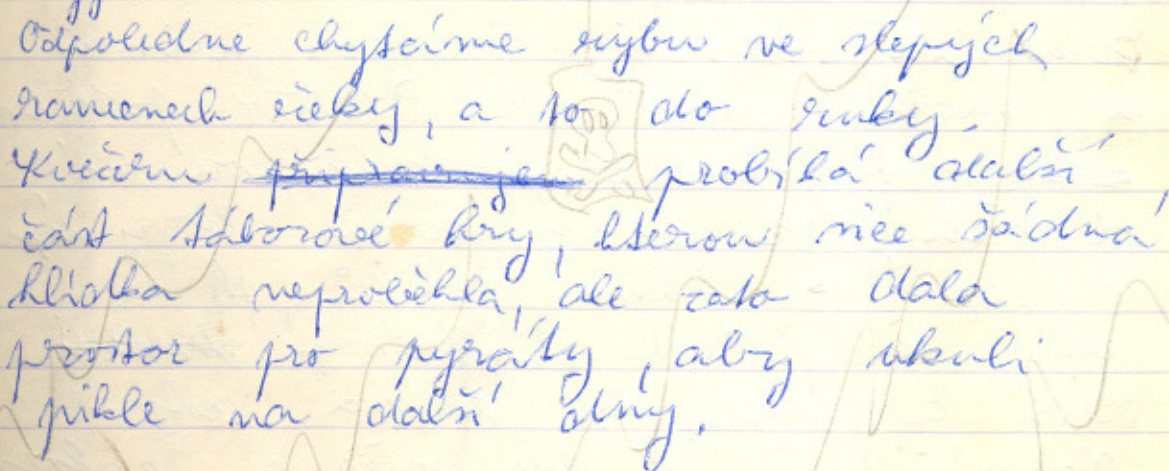 Odpoledne chytáme rybu ve slepých
ramenech řeky, a to do ruky.
Kvečeru připravujem probíhá další
část táborové hry, kterou sice žádná
hlídka neproběhla, ale zato dala
prostor pro pyráty, aby ukuli
pikle na další dny.